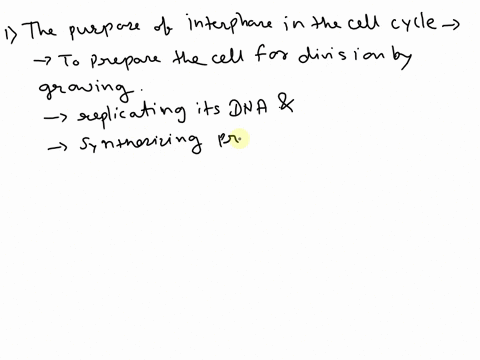 1) The purpose of interphase in the cell cycle →
→ To prepare the cell for division by
growing.
→ replicating its DNA &
→ Synthesizing pr